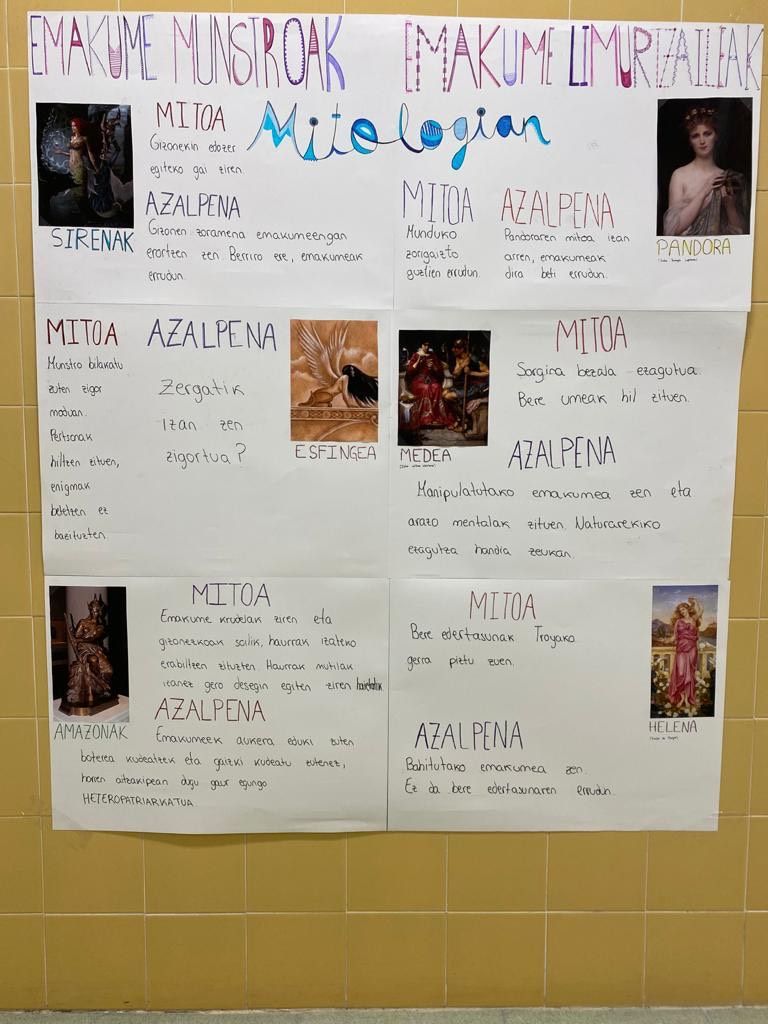 EMAKUME MUNSTROAK
EMAKUME LIMURTZAILEAK
Mitologian
MITOA
Gizonekin edozer
egiteko gai ziren.
AZALPENA
Gizonen zoramena emakumeengan
erortzen zen. Berriro ere, emakumeak
errudun.
SIRENAK
MITOA
Munduko
zorigaizto
guztien errudun.
AZALPENA
Pandoraren mitoa izan
arren, emakumeak
dira beti errudun.
PANDORA
MITOA
Munstro bilakatu
zuten zigor
moduan.
Pertsonak
hiltzen zituen,
enigmak
betetzen ez
bazituzten.
AZALPENA
Zergatik
izan zen
zigortua?
ESFINGEA
MEDEA
MITOA
Sorgina bezala ezagutua.
Bere umeak hil zituen.
AZALPENA
Manipulatutako emakumea zen eta
arazo mentalak zituen. Naturarekiko
ezagutza handia zeukan.
AMAZONAK
MITOA
Emakume krudelak ziren eta
gizonezkoak soilik, haurrak izateko
erabiltzen zituzten. Haurrak mutilak
izanez gero desegin egiten ziren haietatik
AZALPENA
Emakumeek aukera eduki zuten
boterea kudeatzek eta gaizki kudeatu zutenez,
horren aitzakipean dugu gaur egungo
HETEROPATRIARKATUA.
MITOA
Bere edertasunak Troyako
gerra piztu zuen.
AZALPENA
Bahitutako emakumea zen.
Ez da bere edertasunaren errudun.
HELENA